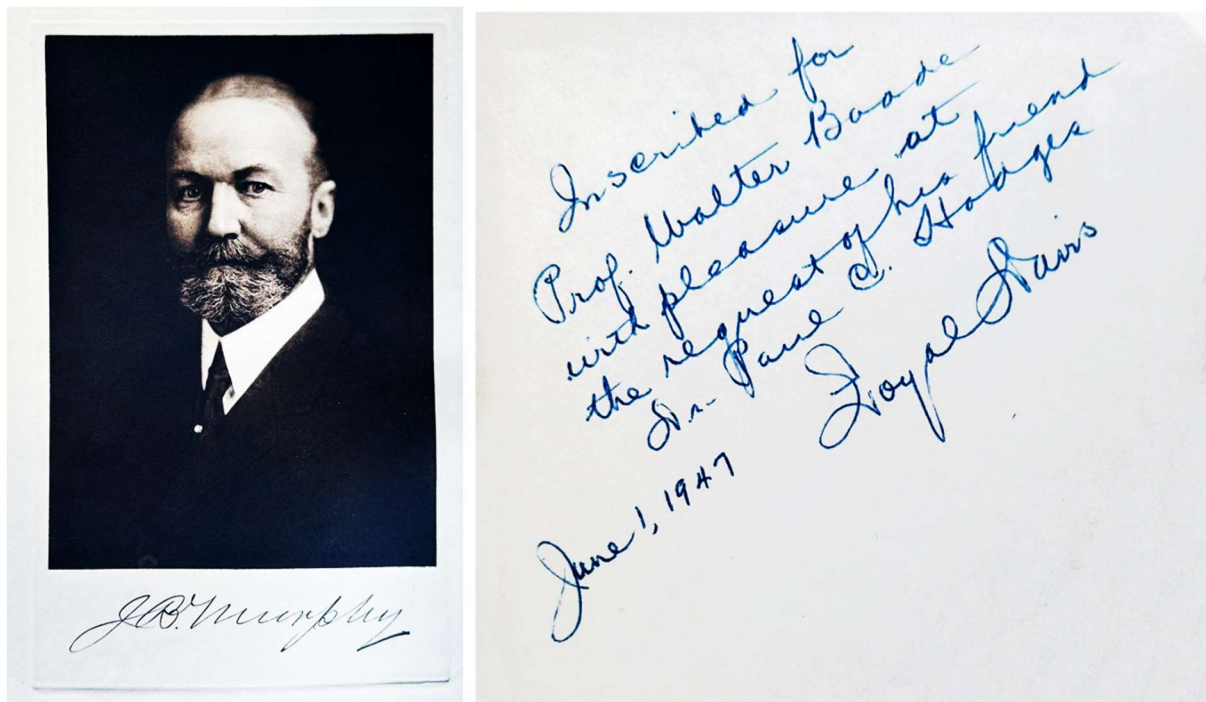 J.B. Murphy
Inscribed for
Prof. Walter Baade
with pleasure at
the request of his friend
Dr. Paul C. Hodges
Loyal Davis
June 1, 1947